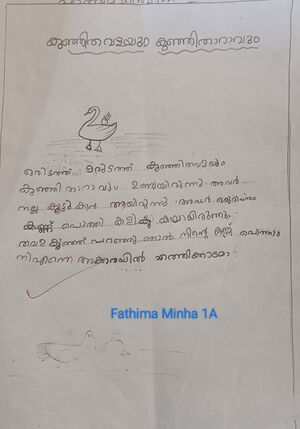 കുഞ്ഞിതവളയും കുഞ്ഞിതാറാവും
ഒരിടത്ത് ഒരിടത്ത് കുഞ്ഞിതവളയും
കുഞ്ഞിതാറാവും ഉണ്ടായിരുന്നു. അവർ
നല്ല കൂട്ടുകാർ ആയിരുന്നു. അവർ ഒരുദിവസം
കണ്ണ് പൊത്തി കളിക്കുകയായിരുന്നു.
തവള കുഞ്ഞ് പറഞ്ഞു ഞാൻ നിന്റെ കണ്ണ് പൊത്താം
നീഎന്നെ അക്കരയിൽ എത്തിക്കാമോ
Fathima Minha 1A